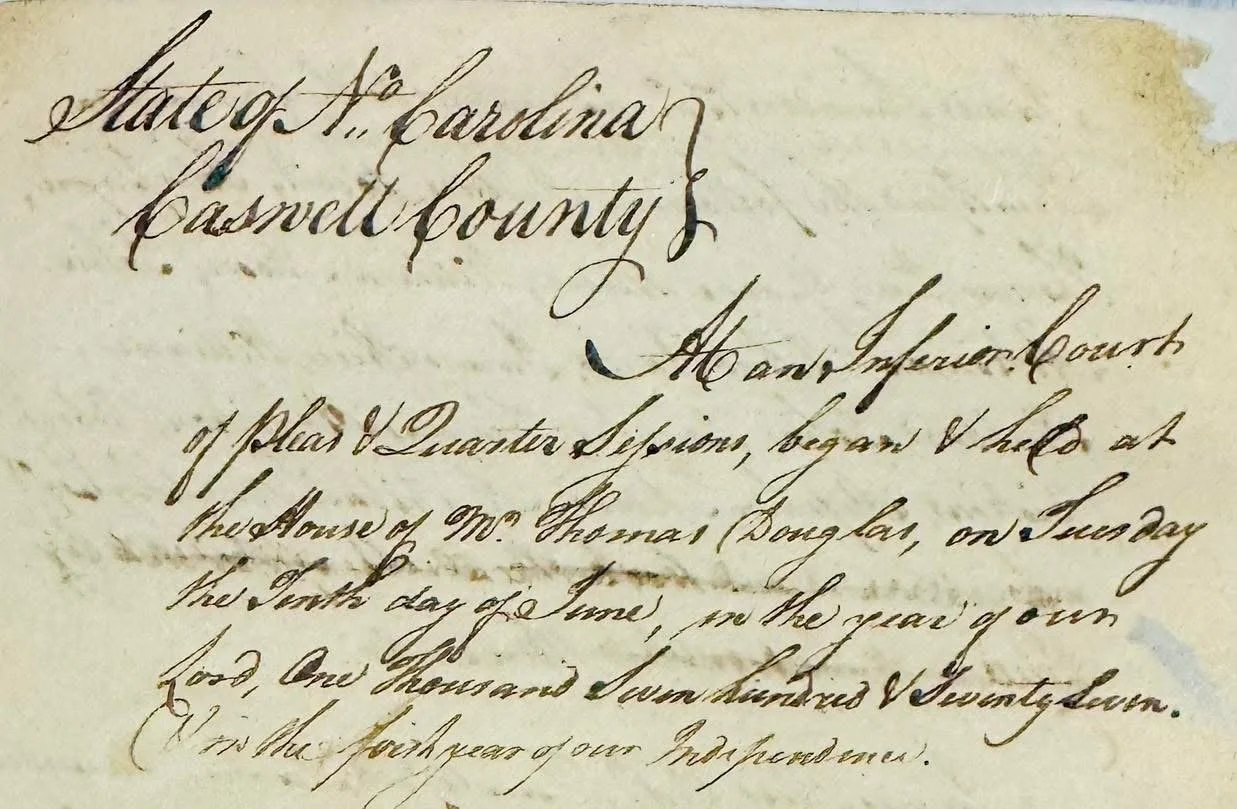 State of No. Carolina
Caswell County
At an Inferior Court
of Pleas & Quarter Sessions, began & held at
the House of Mr. Thomas Douglas, on Tuesday
the Tenth day of June, in the year of our
Lord, One Thousand Seven hundred & Seventy Seven.
& in the first year of our Independence.